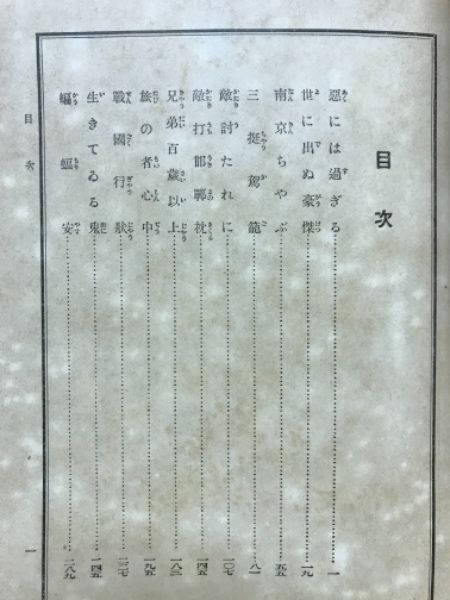 目次
惡には過ぎる……一
世に出ぬ豪傑……一九
南京ちやぶ……五五
三挺駕籠……八一
敵討たれに……一〇七
敵打邯鄲枕……一四五
兄弟百歳以上……一八三
旅の者心中……一九五
戰國行狀……
生きてゐる鬼……
蝙蝠安……二八九
目次
一